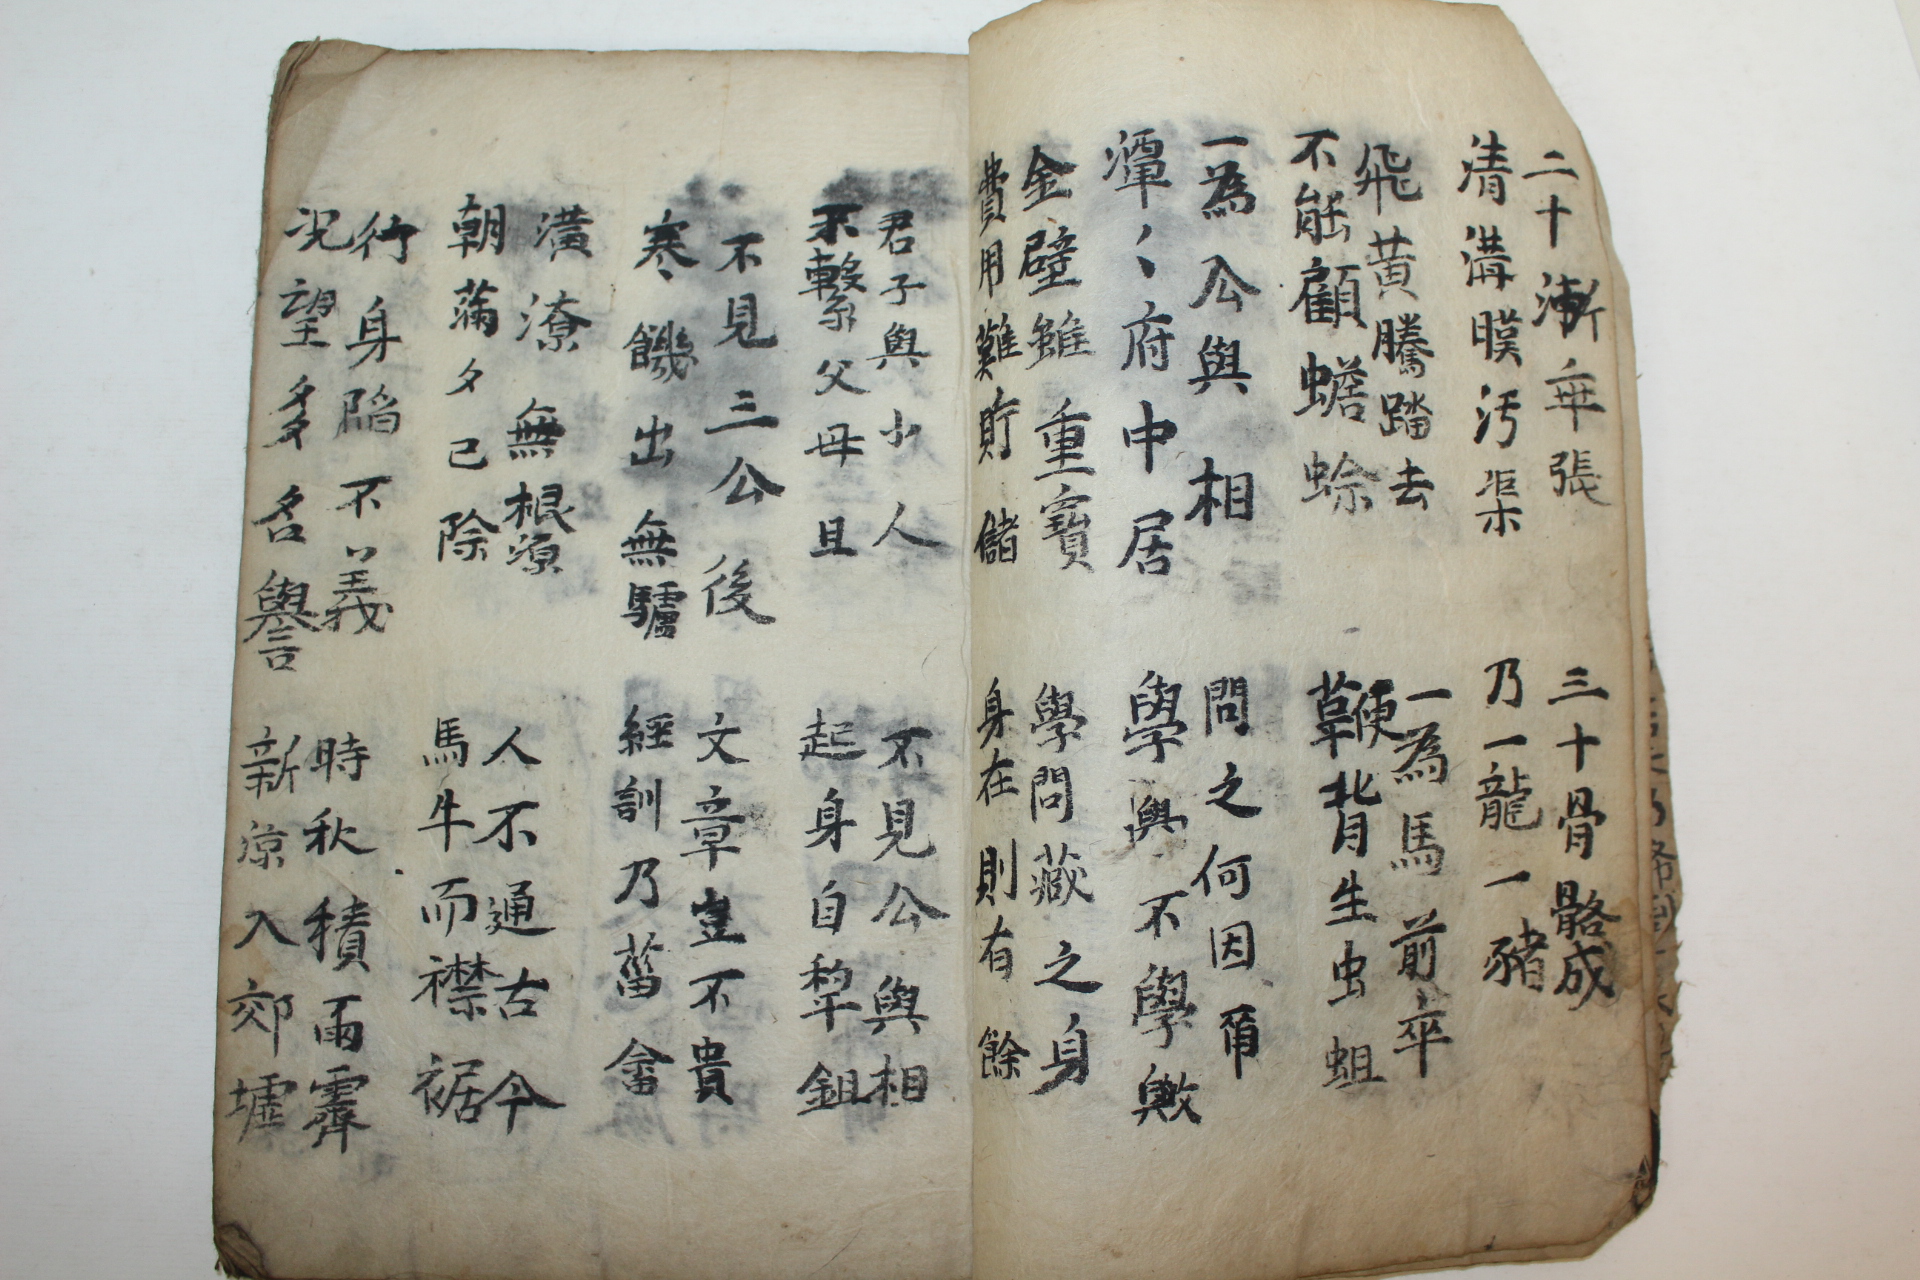 二十漸乖張
清溝暎汚渠
三十骨骼成
乃一龍一豬
飛黃騰踏去
不能顧蟾蜍
一為馬前卒
鞭背生虫蛆
一為公與相
潭〻府中居
問之何因爾
學與不學歟
金璧雖重寶
費用難貯儲
學問藏之身
身在則有餘
君子與小人
不繫父母且
不見公與相
起身自犁鉏
不見三公後
寒饑出無驢
文章豈不貴
經訓乃菑畬
潢潦無根源
朝滿夕已除
人不通古今
馬牛而襟裾
行身陷不義
況望多名譽
時秋積雨霽
新凉入郊墟